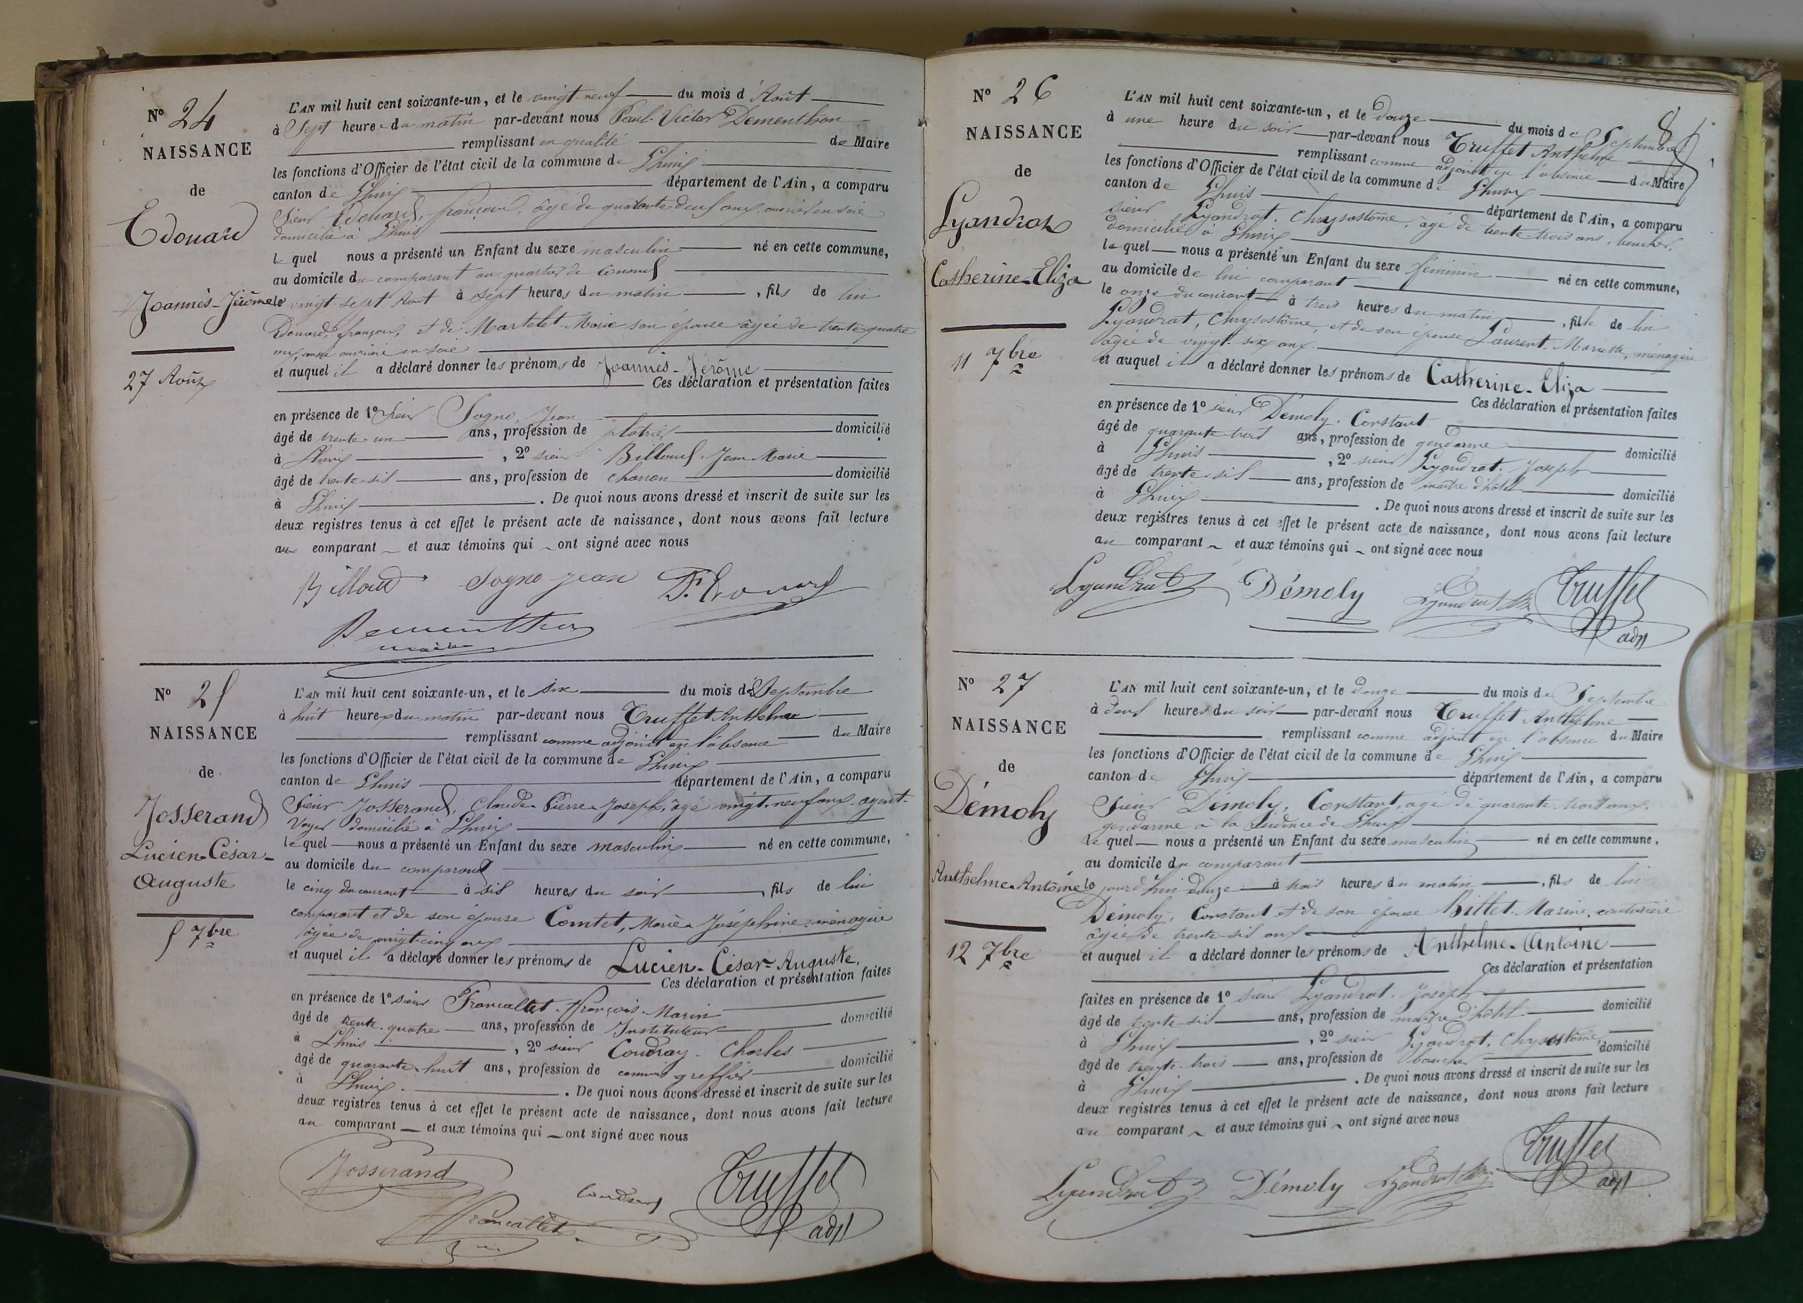 N° 24
NAISSANCE
de
Edouard
Joannès-Jérôme
27 Août
L'AN mil huit cent soixante-un, et le vingt-neuf du mois d'Août
à Sept heures du matin par-devant nous Paul Victor Dementhon
remplissant en qualité de Maire
les fonctions d'Officier de l'état civil de la commune de Lhuis
canton de Lhuis département de l'Ain, a comparu
Sieur Edouard, françois, âgé de quarante deux ans, ouvrier en soie
domicilié à Lhuis
le quel nous a présenté un Enfant du sexe masculin né en cette commune,
au domicile du comparant au quartier de
le vingt sept Août à sept heures du matin, fils de lui
Edouard, françois, et de Martelet Marie son épouse âgée de trente quatre
ans, ouvrière en soie
et auquel il a déclaré donner les prénoms de Joannès-Jérôme
Ces déclaration et présentation faites
en présence de 1° Sieur Sogno, Jean
âgé de trente un ans, profession de plâtrier domicilié
à Lhuis, 2° sieur Billoud Jean Marie
âgé de trente-six ans, profession de charron domicilié
à Lhuis. De quoi nous avons dressé et inscrit de suite sur les
deux registres tenus à cet effet le présent acte de naissance, dont nous avons fait lecture
au comparant et aux témoins qui ont signé avec nous
Billoud Sogno jean F. Edouard
Dementhon
maire
N° 25
NAISSANCE
de
Josserand
Lucien-César-
Auguste
5 7bre
L'AN mil huit cent soixante-un, et le six du mois de Septembre
à huit heures du matin par-devant nous Truffet Anthelme
remplissant comme adjoint en l'absence du Maire
les fonctions d'Officier de l'état civil de la commune de Lhuis
canton de Lhuis département de l'Ain, a comparu
Sieur Josserand, Claude-Pierre-Joseph, âgé vingt-neuf ans, agent-
Voyer domicilié à Lhuis
le quel nous a présenté un Enfant du sexe masculin né en cette commune,
au domicile du comparant
le cinq du courant à six heures du soir, fils de lui
comparant et de son épouse Comtet, Marie-Joséphine ménagère
âgée de vingt-cinq ans
et auquel il a déclaré donner les prénoms de Lucien-César-Auguste.
Ces déclaration et présentation faites
en présence de 1° sieur Francallet François Marin
âgé de trente-quatre ans, profession de Instituteur domicilié
à Lhuis, 2° sieur Coudray Charles
âgé de quarante-huit ans, profession de commis greffier domicilié
à Lhuis. De quoi nous avons dressé et inscrit de suite sur les
deux registres tenus à cet effet le présent acte de naissance, dont nous avons fait lecture
au comparant et aux témoins qui ont signé avec nous
Josserand Coudray Truffet
Francallet adjt
N° 26
NAISSANCE
de
Lyandrat
Catherine-Eliza
11 7bre
L'AN mil huit cent soixante-un, et le douze du mois de Septembre
à une heure du soir par-devant nous Truffet Anthelme
remplissant comme adjoint en l'absence du Maire
les fonctions d'Officier de l'état civil de la commune de Lhuis
canton de Lhuis département de l'Ain, a comparu
sieur Lyandrat, Chrysostôme, âgé de trente trois ans, boucher,
domicilié à Lhuis
le quel nous a présenté un Enfant du sexe féminin né en cette commune,
au domicile de lui comparant
le onze du courant à trois heures du matin, fille de lui
Lyandrat, Chrysostôme, et de son épouse Laurent Mariette, ménagère
âgée de vingt-six ans
et auquel il a déclaré donner les prénoms de Catherine-Eliza
Ces déclaration et présentation faites
en présence de 1° sieur Démoly, Constant
âgé de quarante trois ans, profession de gendarme domicilié
à Lhuis, 2° sieur Lyandrat, Joseph
âgé de trente-six ans, profession de maître d'hôtel domicilié
à Lhuis. De quoi nous avons dressé et inscrit de suite sur les
deux registres tenus à cet effet le présent acte de naissance, dont nous avons fait lecture
au comparant et aux témoins qui ont signé avec nous
Lyandrat Démoly Lyandrat Truffet
adjt
N° 27
NAISSANCE
de
Démoly
Anthelme-Antoine
12 7bre
L'AN mil huit cent soixante-un, et le douze du mois de Septembre
à deux heures du soir par-devant nous Truffet Anthelme
remplissant comme adjoint en l'absence du Maire
les fonctions d'Officier de l'état civil de la commune de Lhuis
canton de Lhuis département de l'Ain, a comparu
Sieur Démoly, Constant, âgé de quarante-trois ans,
gendarme à la résidence de Lhuis
le quel nous a présenté un Enfant du sexe masculin né en cette commune,
au domicile du comparant
le jourd'hui douze à trois heures du matin, fils de lui
Démoly, Constant et de son épouse Billet Marine, couturière
âgée de trente-six ans
et auquel il a déclaré donner les prénoms de Anthelme-Antoine
Ces déclaration et présentation
faites en présence de 1° sieur Lyandrat, Joseph
âgé de trente-six ans, profession de maître d'hôtel domicilié
à Lhuis, 2° sieur Lyandrat, Chrysostôme,
âgé de trente-trois ans, profession de boucher domicilié
à Lhuis. De quoi nous avons dressé et inscrit de suite sur les
deux registres tenus à cet effet le présent acte de naissance, dont nous avons fait lecture
au comparant et aux témoins qui ont signé avec nous
Lyandrat Démoly Lyandrat Truffet
adjt